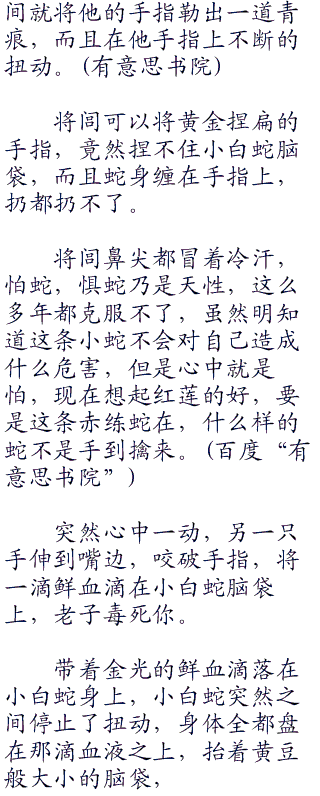 间就将他的手指勒出一道青
痕，而且在他手指上不断的
扭动。（有意思书院）
将闾可以将黄金捏扁的
手指，竟然捏不住小白蛇脑
袋，而且蛇身缠在手指上，
扔都扔不了。
将闾鼻尖都冒着冷汗，
怕蛇，惧蛇乃是天性，这么
多年都克服不了，虽然明知
道这条小蛇不会对自己造成
什么危害，但是心中就是
怕，现在想起红莲的好，要
是这条赤练蛇在，什么样的
蛇不是手到擒来。（百度“有
意思书院”）
突然心中一动，另一只
手伸到嘴边，咬破手指，将
一滴鲜血滴在小白蛇脑袋
上，老子毒死你。
带着金光的鲜血滴落在
小白蛇身上，小白蛇突然之
间停止了扭动，身体全都盘
在那滴血液之上，抬着黄豆
般大小的脑袋，